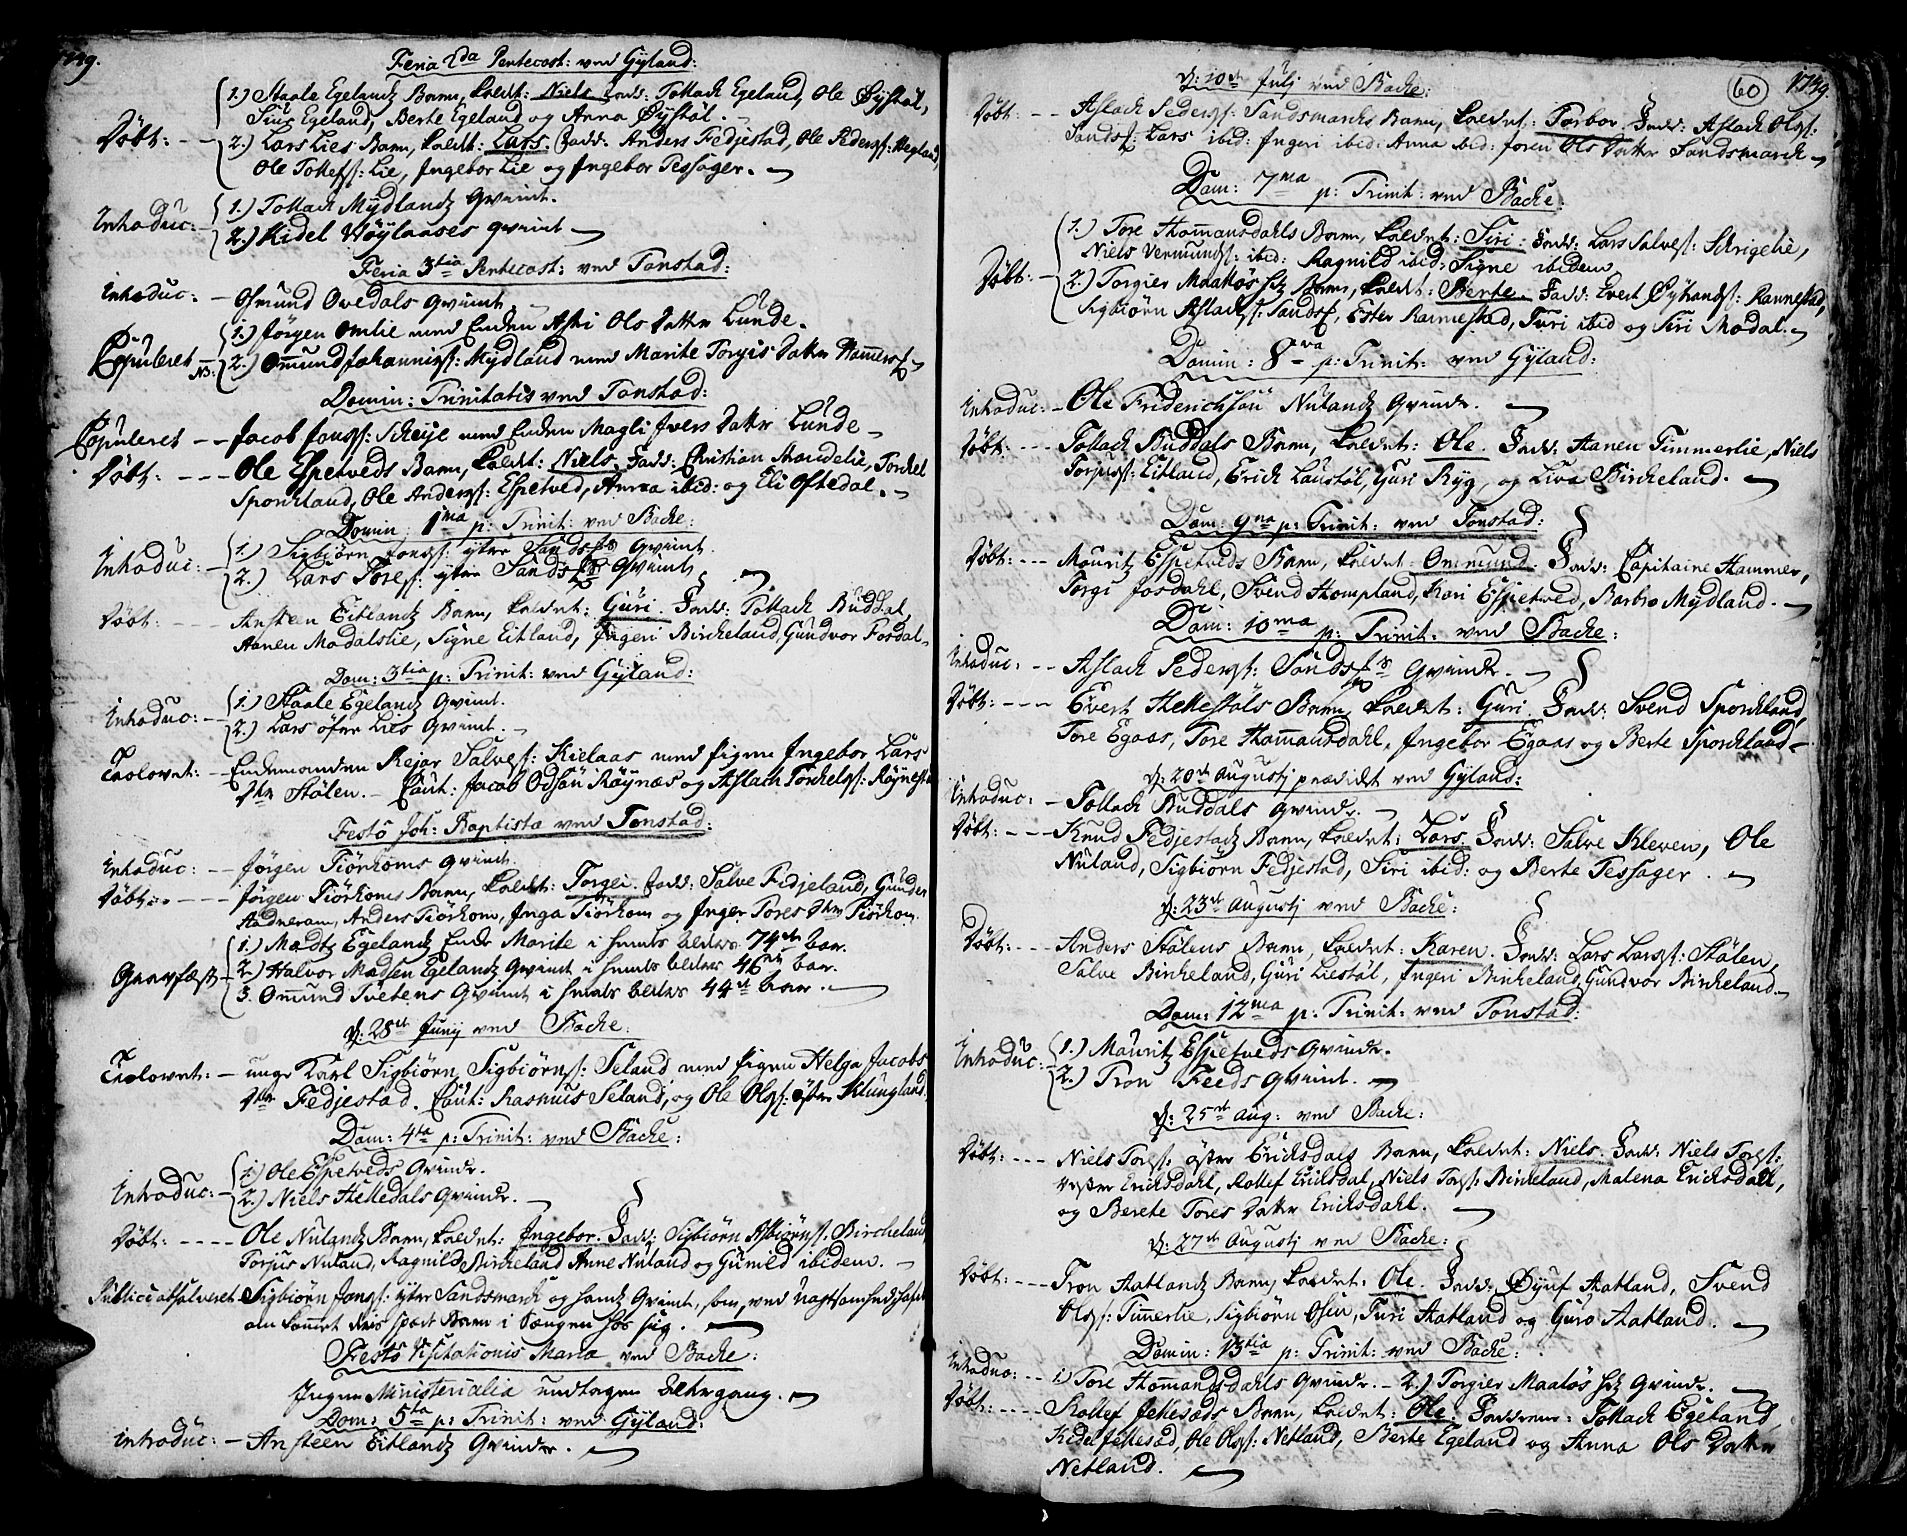 1749.
Feria 2da Pentecost: ved Gÿland:
Döbt: -- 1.) Staale Egelands Barn, kaldt: Niels. Fadd: Tollach Egeland, Ole Øÿstøl,
Siur Egeland, Berte Egeland og Anna Øÿstøl. -
2.) Lars Lies Barn, kaldt: Lars. Fadd: Anders Fedjestad, Ole Peders: Hegland,
Ole Tollefs: Lie, Ingebor Lie og Ingebor Tessager. -
Introduc: - 1.) Tollach Mÿdlands Qvinde.
2.) Kidel Høÿlaases Qvinde -
Feria 3tia Pentecost: ved Tonstad:
Introduc: - Osmund Ovedals Qvinde -
Copuleret - 1.) Jørgen Omlie med Enken Assri Ols Datter Lunde.
NB: 2.) Omund Johannis: Mÿdland med Marite Torgis Datter
Domin: Trinitatis ved Tonstad:
Copuleret -- Jacob Jons: Scheije med Enken Magli Ivers Datter Lunde -
Döbt: --- Ole Espetveds Barn, kaldt: Niels. Fadd: Christian Mondelie, Torchel
Sporchland, Ole Anders: Espetved, Anna ibid: og Eli Oftedal. -
Domin: 1ma p: Trinit: ved Backe:
Introduc: - 1.) Sigbiörn Jons: ÿtre Qvinde.
2.) Lars Tores: ÿtre Qvinde
Döbt: --- Ansteen Eitlands Barn, kaldet: Guri. Fadd: Tollach Buddal,
Aanen Modalslie, Signe Eitland, Ingeri Bircheland, Gundvor Josdal -
Dom: 3tia p: Trinit: ved Gÿland:
Introduc: -- 1.) Staale Egelands Qvinde.
2.) Lars öfre Lies Qvinde. -
Troloved: - Enkemanden Rejar Salves: Kielaas med Pigen Ingebor Lars
Dtter Stölen. - Caut: Jacob Odsön Röÿnæs og Aslach Torchels:
Festo Joh: Baptistæ ved Tonstad:
Introduc: -- Jörgen Tiörhoms Qvinde.
Döbt: --- Jörgen Tiörhoms Barn, kaldt: Torgei. Fadd: Salve Fidjeland, Gunder
Hadneram, Anders Tiörhom, Inga Tiörhom og Inger Tores Dtter Tiörhom.
Gravfæst - 1.) Madts Egelands Enke Marite i hendes alders 74de aar.
2.) Halvor Madsen Egelands Qvinde i hendes alders 46de aar.
3. Omund Tvetens Qvinde i hendes alders 44de aar. -
d: 28de Junij ved Backe:
Troloved: - unge Karl Sigbiörn Sigbiörns: Seland med Pigen Helga Jacobs
Dtter Fedjestad. Caut: Rasmus Seland, og Ole Ols: öfre Klungland.
Dom: 4ta p: Trinit: ved Backe:
Introduc: - 1.) Ole Espetveds Qvinde.
2.) Niels Hekkedals Qvinde. -
Döbt: ---- Ole Nulands Barn, kaldet: Ingebor. Fadd: Sigbiörn Asbiörns: Bircheland,
Torjus Nuland, Ragnild Bircheland Anne Nuland og Gunild ibidem. -
Publice absolveret Sigbiörn Jons: ÿtre Sandsmarch og hands Qvinde, som ved uagtsomhed hafde
om kommet deris spæde Barn i Sængen hos sig. -
Festo Visitationis Mariæ ved Backe:
Ingen Ministerialia undtagen Altergang. -
Dom: 5ta p: Trinit: ved Gÿland:
Introduc: - Ansteen Eitlands Qvinde. -
60
1749.
d: 10de Julj ved Backe:
Döbt: -- Aslach Peders: Sandsmarchs Barn, kaldet: Torbor. Fadd: Aslach Ols:
Lars ibid: Ingeri ibid: Anna ibid: Joren Ols Datter Sandsmarch -
Dom: 7ma p: Trinit: ved Backe:
Döbt: - 1.) Tore Hommansdahls Barn, kaldet: Siri. Fadd: Lars Salves: Schrigelie,
Niels Vermunds: ibid: Ragnild ibid: Signe ibidem
2.) Torgier Barn, kaldt: Berte. Fadd: Evert Rannestad,
Sigbiörn Aslachs: Ester Rannestad, Turi ibid og Siri Modal. -
Domin: 8va p: Trinit: ved Gÿland:
Introduc: - Ole Friderichsön Nulands Qvinde. -
Döbt: --- Tollach Buddals Barn, kaldet: Ole. Fadd: Aanen Timmerlie, Niels
Torjus: Eitland, Erich Laustöl, Guri Rÿg, og Liva Bircheland. -
Dom: 9na p: Trinit: ved Tonstad:
Döbt: --- Mouritz Espetveds Barn, kaldet: Ommund. Fadd: Capitaine Hammer,
Torgi Josdahl, Svend Hompland, Kari Espetved, Barbro Mÿdland. -
Dom: 10ma p: Trinit: ved Backe:
Introduc: -- Aslach Peders: Qvinde. -
Döbt: --- Evert Hekkestöls Barn, kaldet: Guri. Fadd: Svend Sporchland,
Tore Egaas, Tore Hommansdahl, Ingebor Egaas og Berte Sporchland -
d: 20de Augustj prædiket ved Gÿland:
Introduc: - Tollach Buddals Qvinde. -
Döbt: --- Knud Fedjestads Barn, kaldet: Lars. Fadd: Salve Kleven, Ole
Nuland, Sigbiörn Fedjestad, Siri ibid: og Berte Tessager. -
d: 23de Augustj ved Backe:
Döbt: --- Anders Stölens Barn, kaldet: Karen. Fadd: Lars Lars: Stölen,
Salve Bircheland, Guri Liestöl, Ingeri Bircheland, Gundvor Bircheland. -
Dom: 12ma p: Trinit: ved Tonstad:
Introduc: - 1.) Mauritz Espetveds Qvinde.
2.) Tron Feeds Qvinde. -
d: 25de Aug: ved Backe:
Döbt: --- Niels Tores: östre Ericksdals Barn, kaldet: Niels. Fadd: Niels Tores:
vestre Ericksdahl, Rollef Ericksdal, Niels Tores: Bircheland, Malena Ericksdall,
og Berete Tores Datter Ericksdahl. -
d: 27de Augustj ved Backe:
Döbt: --- Tron Aatlands Barn, kaldet: Ole. Fadd: Øÿuf Aatland, Svend
Ols: Timerlie, Sigbiörn Osen, Turi Aatland og Guro Aatland. -
Domin: 13tia p: Trinit: ved Backe:
Introduc: -- 1.) Tore Hommansdahls Qvinde. - 2.) Torgier Qvinde. -
Döbt: ---- Rollef Jekesads Barn, kaldet: Ole. Fadderne: Tollach Egeland,
Kidel Jekesad, Ole Ols: Netland, Berte Egeland og Anna Ols Datter
Netland. -